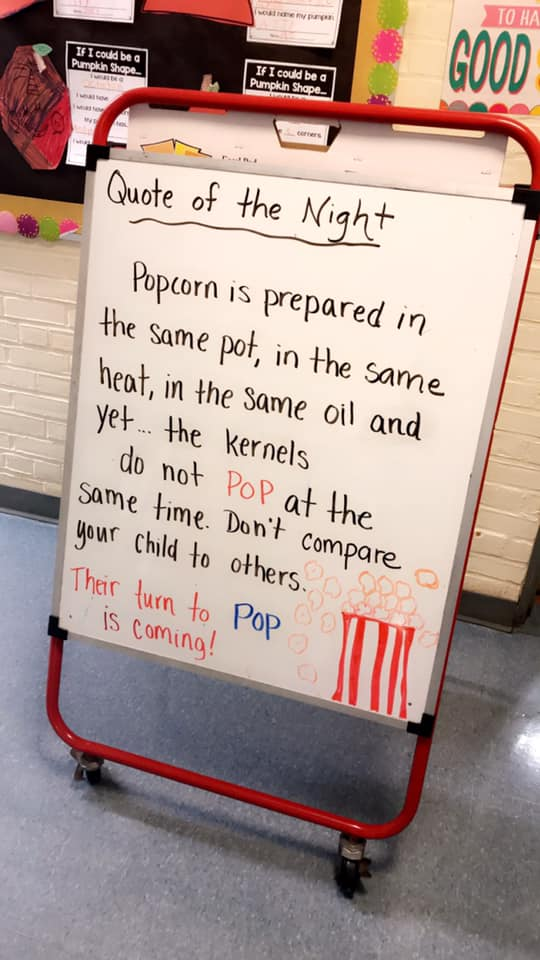 I would name my pumpkin
TO HA
GOOD
If I could be a
Pumpkin Shape...
I would be a
I would have
I would have
If I could be a
Pumpkin Shape...
corners
Quote of the Night
Popcorn is prepared in
the same pot, in the same
heat, in the same oil and
yet... the kernels
do not POP at the
same time. Don't compare
your child to others.
Their turn to POP
is coming!